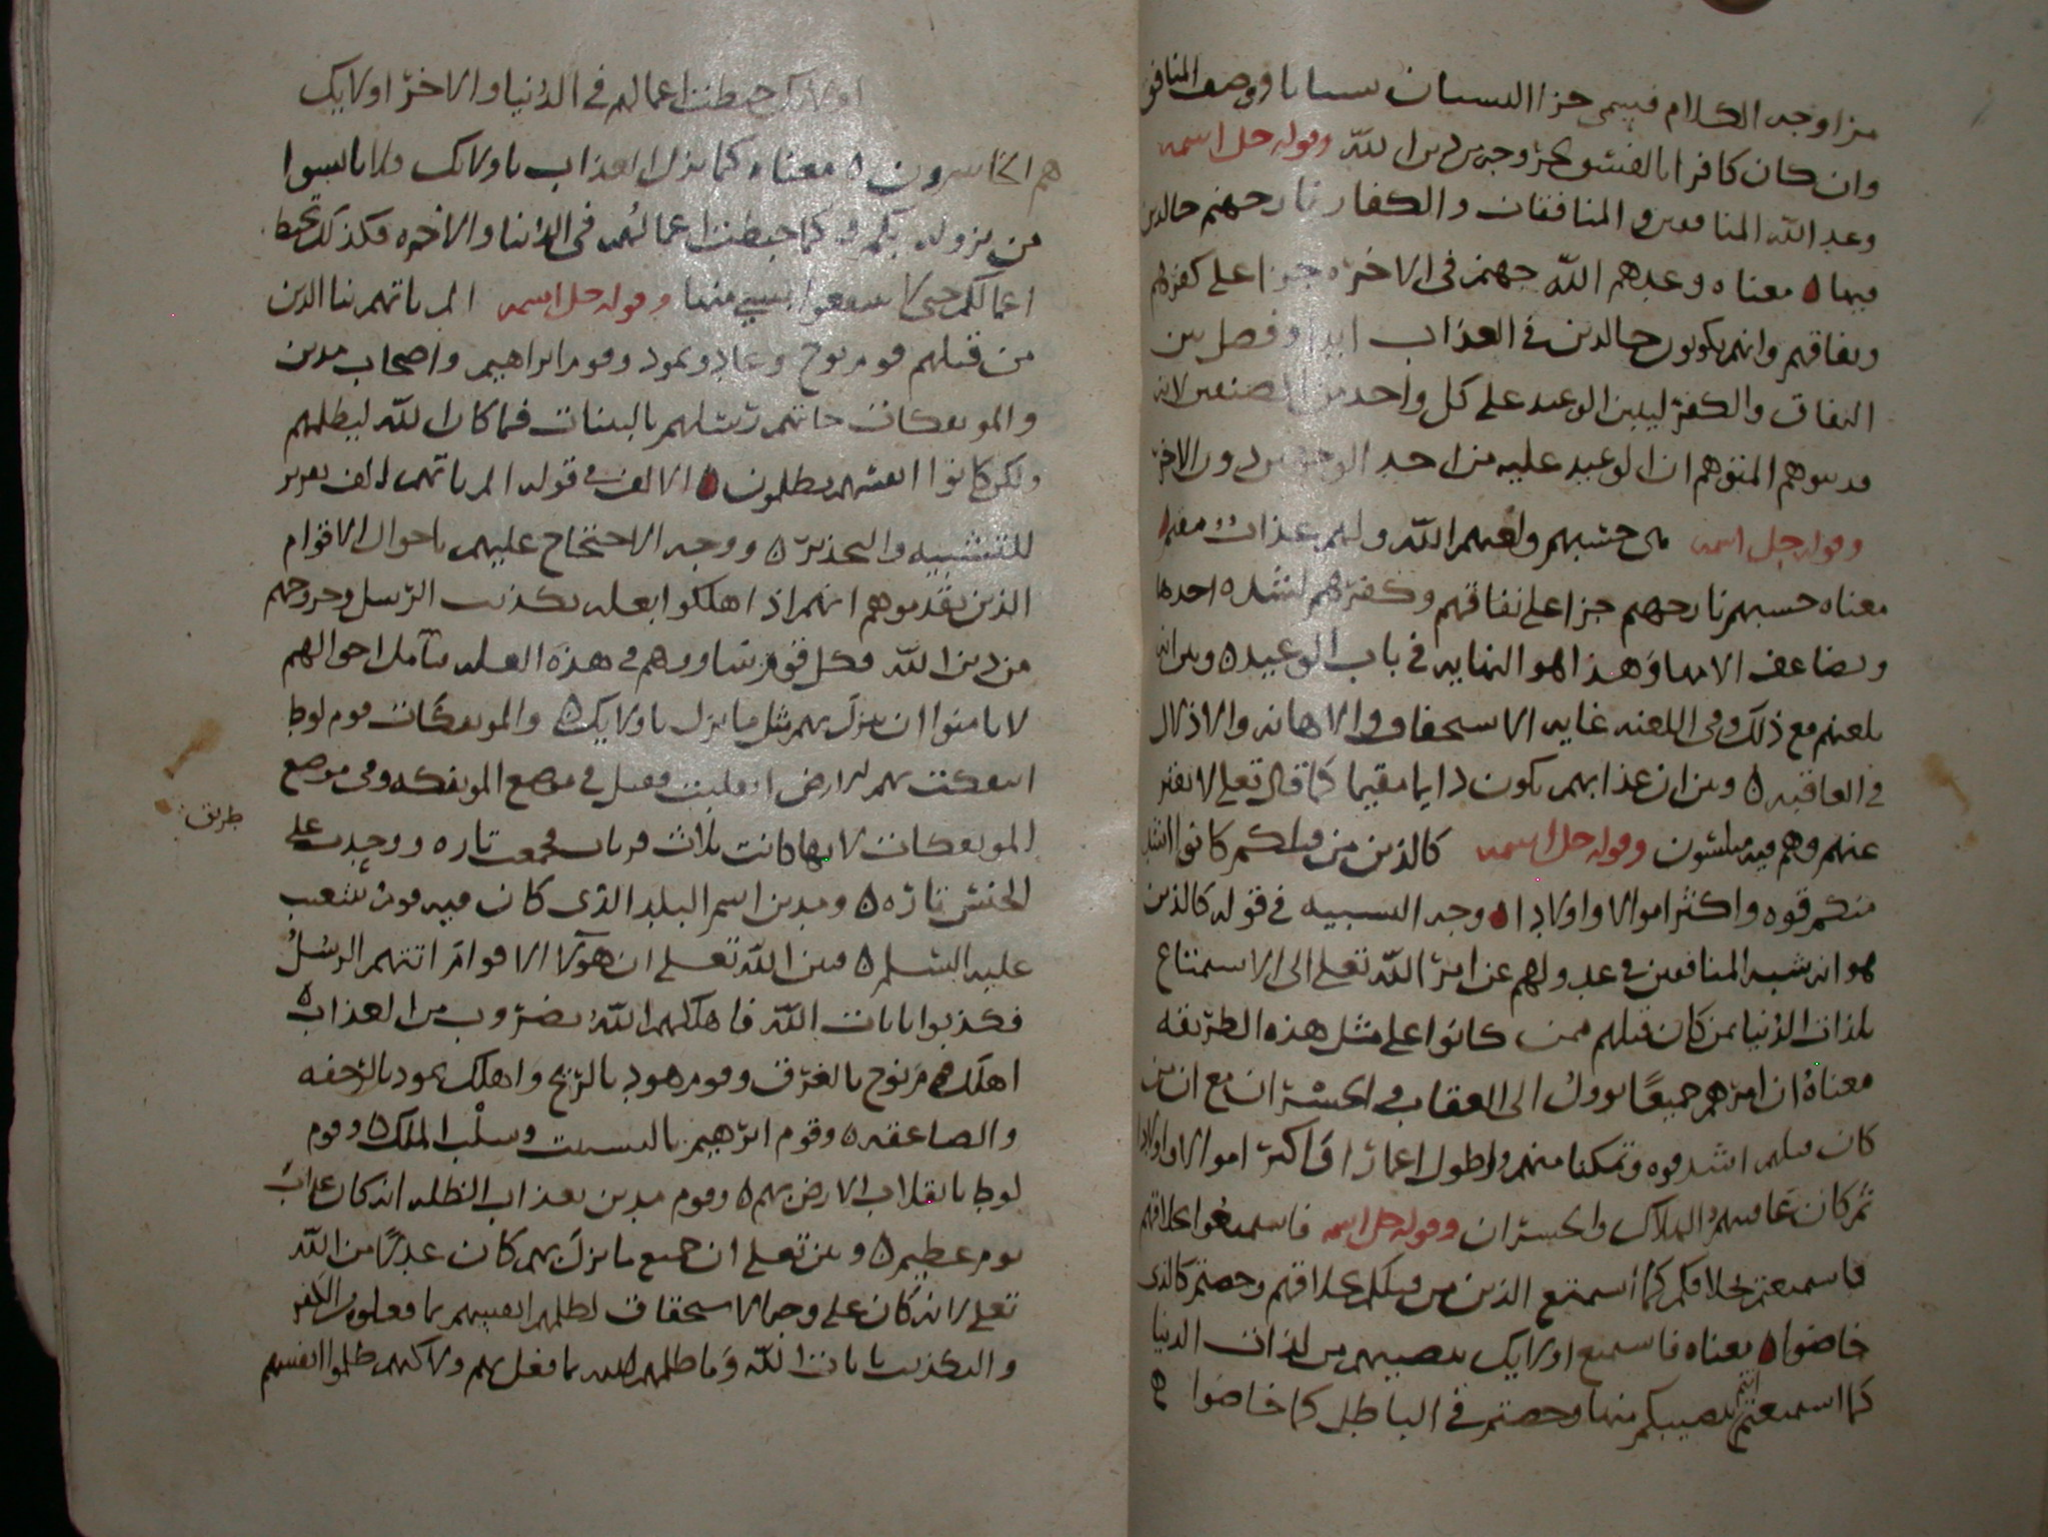 من اوجه الكلام فيسمى جزا النسيان نسيانا ووصف المنافق
وان كان كافرا بالفسق لخروجه من دين الله وقوله جل اسمه
وعد الله المنافقين والمنافقات والكفار نار جهنم خالدين
فيها ه معناه وعدهم الله جهنم في الاخره جزا على كفرهم
ونفاقهم وانهم يكونون خالدين في العذاب ابدا وفصل بين
النفاق والكفر ليبين الوعيد على كل واحد من الصنفين لانه
قد يتوهم المتوهم ان الوعيد عليه من احد الوجهين دون الاخر
وقوله جل اسمه هي حسبهم ولعنهم الله ولهم عذاب مقيم
معناه حسبهم نار جهنم جزا على نفاقهم وكفرهم لشده احدها
وتضاعف الامها وهذا هو النهايه في باب الوعيد ه وبين انه
يلعنهم مع ذلك وفي اللعنه غايه الاستخفاف والاهانه والاذلال
في العاقبه ه وبين ان عذابهم يكون دايما مقيما كما قال تعلى لا يفتر
عنهم وهم فيه مبلسون وقوله جل اسمه كالذين من قبلكم كانوا اشد
منكم قوه واكثر اموالا واولادا ه وجه التشبيه في قوله كالذين
هو انه شبه المنافقين في عدولهم عن امر الله تعلى الى الاستمتاع
بلذات الدنيا بمن كان قبلهم ممن كانوا على مثل هذه الطريقه
معناه ان امرهم جميعا يوول الى العقاب والخسران مع ان من
كان قبلهم اشد قوه وتمكنا منهم واطول اعمارا واكثر اموالا واولادا
ثم كان عاقبتهم الهلاك والخسران وقوله جل اسمه فاستمتعوا بخلاقهم
فاستمتعتم بخلاقكم كما استمتع الذين من قبلكم بخلاقهم وخضتم كالذى
خاضوا ه معناه فاستمتع اولايك بنصيبهم من لذات الدنيا
كما استمتعتم انتم بنصيبكم منها وخضتم في الباطل كما خاضوا هم
اولايك حبطت اعمالهم في الدنيا والاخره واولايك
هم الخاسرون ه معناه كما نزل العذاب باولايك فلا تامنوا
من نزوله بكم وكما حبطت اعمالهم في الدنيا والاخره فكذلك تحبط
اعمالكم حتى لا تنتفعوا بشي منها وقوله جل اسمه الم ياتهم نبا الذين
من قبلهم قوم نوح وعاد وثمود وقوم ابراهيم واصحاب مدين
والموتفكات جاتهم رسلهم بالبينات فما كان الله ليظلمهم
ولكن كانوا انفسهم يظلمون ه الالف في قوله الم ياتهم الف تقرير
للتنبيه والتحذير ه ووجه الاحتجاج عليهم باحوال الاقوام
الذين تقدموهم انهم اذ اهلكوا بعله تكذيب الرسل وخروجهم
من دين الله فكل قوم ساووهم في هذه العله مثل احوالهم
لا يامنوا ان ينزل بهم مثل ما نزل باولايك ه والموتفكات قوم لوط
ايتفكت بهم الارض انقلبت فقيل في موضع الموتفكه وفي موضع
طريق
الموتفكات لانها كانت ثلاث قريات فجمعت تاره ووحدت على
الجنس تاره ه ومدين اسم البلد الذى كان فيه قوم شعيب
عليه السلم ه فبين الله تعلى ان هولا الاقوام اتتهم الرسل
فكذبوا بايات الله فاهلكهم الله بضروب من العذاب ه
اهلك قوم نوح بالغرق وقوم هود بالريح واهلك ثمود بالرجفه
والصاعقه ه وقوم ابرهيم بالتشتت وسلب الملك ه وقوم
لوط بانقلاب الارض بهم ه وقوم مدين بعذاب الظله انه كان عذاب
يوم عظيم ه وبين تعلى ان جميع ما نزل بهم كان عدلا من الله
تعلى لانه كان على وجه الاستحقاق لظلمهم انفسهم بما فعلوه من الكفر
والتكذيب بايات الله وما ظلمهم الله بما فعل بهم ولاكنهم ظلموا انفسهم